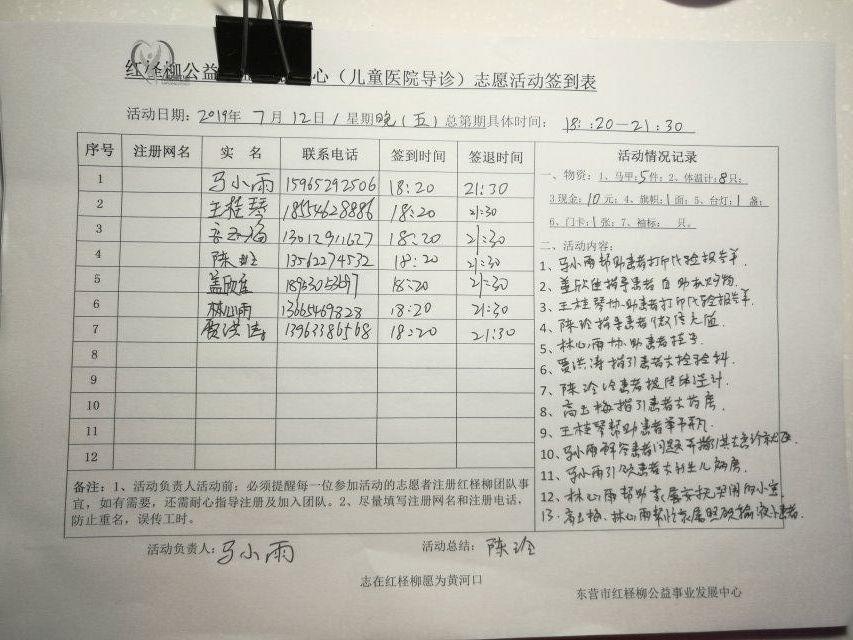 红柽柳公益 心（儿童医院导诊）志愿活动签到表
活动日期：2019年 7月 12日/星期晚（五）总第期具体时间： 18:20—21:30
序号 注册网名 实 名 联系电话 签到时间 签退时间
1 马小雨 15965292506 18:20 21:30
2 王桂琴 18554628886 18:20 21:30
3 13012911627 18:20 21:30
4 陈玲 13562274532 18:20 21:30
5 盖欣佳 18:20 21:30
6 林心雨 13665469828 18:20 21:30
7 贾洪涛 13963386568 18:20 21:30
8
9
10
11
12
活动情况记录
一、物资：1、马甲：5件；2、体温计：8只；
3.现金：10元；4、旗帜：1面；5、台灯：1 盏；
6、门卡：1张；7、袖标： 只。
二、活动内容：
1、马小雨帮助患者打印化验报告单.
2、盖欣佳指导患者自助机
3、王桂琴协助患者打印化验报告单.
4、陈玲指导患者微信充值.
5、林心雨协助患者挂号.
6、贾洪涛指引患者去检验科.
7、陈玲给患者提供体温计.
8、高玉梅指引患者去药房.
9、王桂琴帮助患者
10、马小雨解答患者问题并指引其去急诊
11、马小雨引领患者去新生儿病房.
12、林心雨帮助家属安抚哭闹的小宝
13、高玉梅、林心雨帮忙家属照顾输液患者.
备注：1、活动负责人活动前：必须提醒每一位参加活动的志愿者注册红柽柳团队事
宜，如有需要，还需耐心指导注册及加入团队。2、尽量填写注册网名和注册电话，
防止重名，误传工时。
活动负责人：马小雨 活动总结：陈玲
志在红柽柳愿为黄河口
东营市红柽柳公益事业发展中心